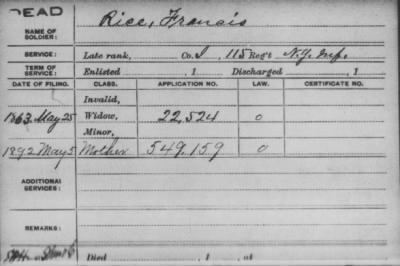 DEAD
NAME OF SOLDIER: Rice, Francis
SERVICE: Late rank, Co. I, 115 Reg't N.Y. Inf.
TERM OF SERVICE: Enlisted , 1 Discharged , 1
DATE OF FILING. CLASS. APPLICATION NO. LAW. CERTIFICATE NO.
Invalid,
1863 May 25 Widow, 22,524 0
Minor,
1892 May 5 Mother 549,159 0
ADDITIONAL SERVICES:
REMARKS:
Died , 1 , at